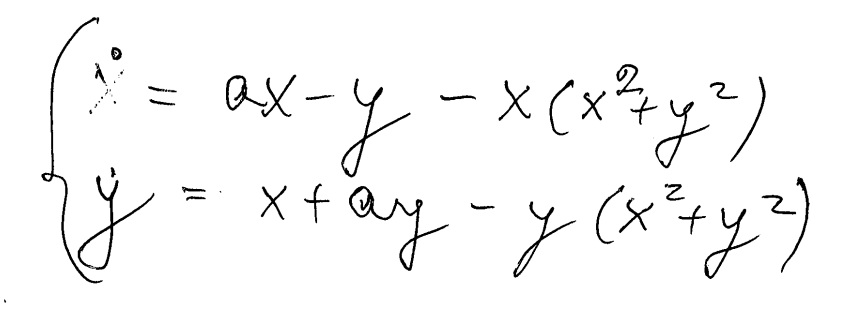 ẋ = ax - y - x(x²+y²)
ẏ = x + ay - y(x²+y²)